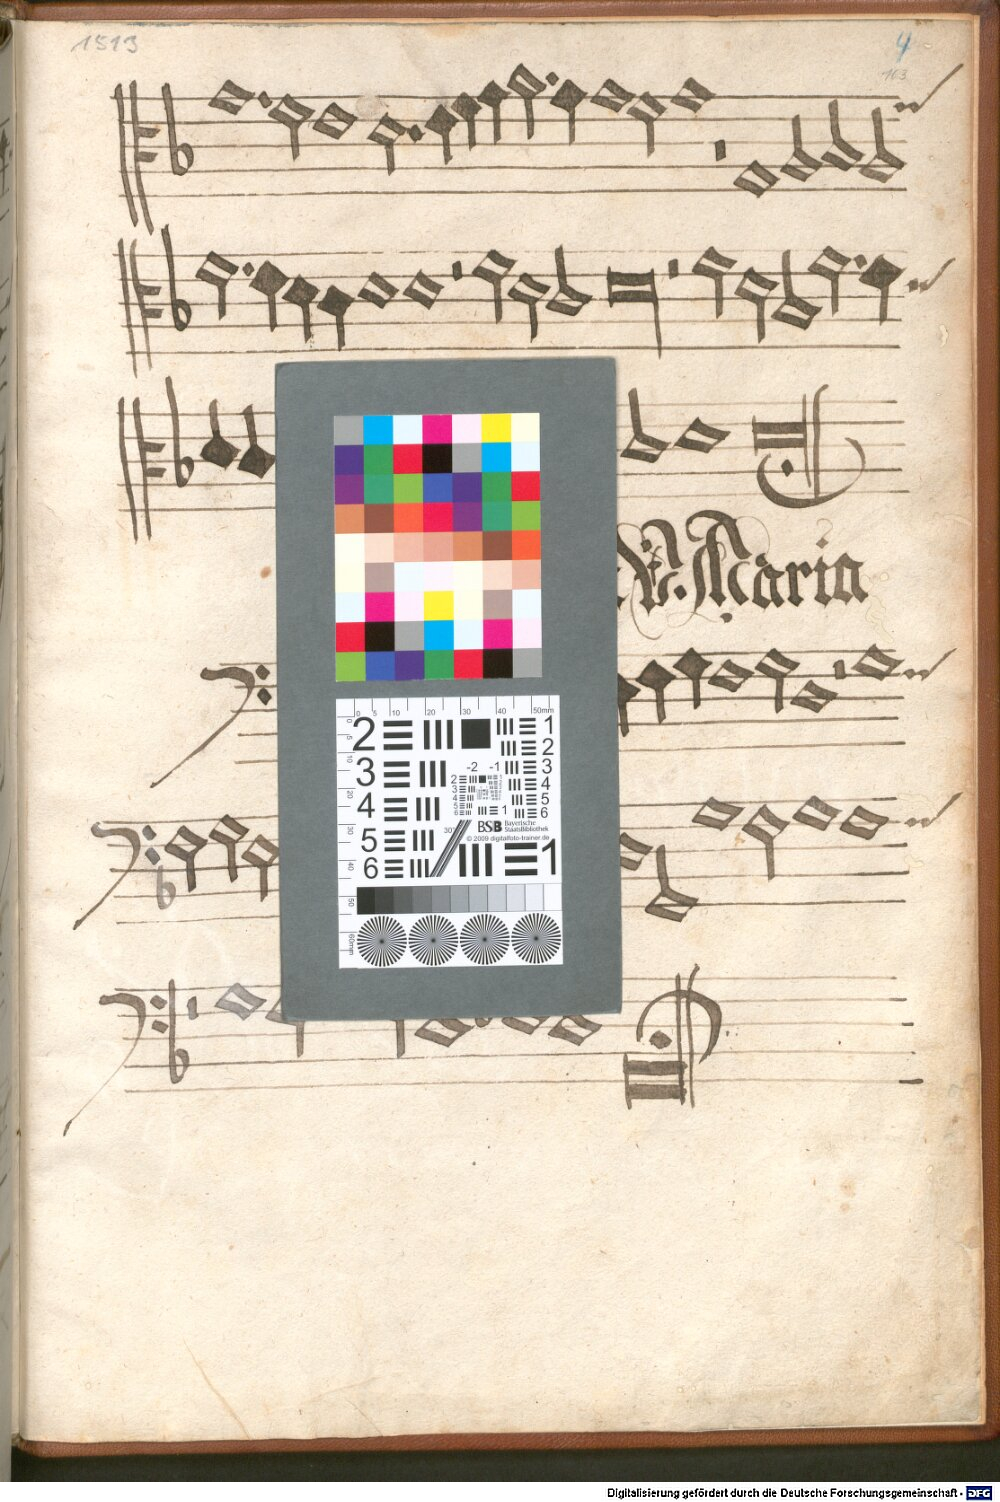 1513
4
163
Maria
0 5 10 20 30 40 50mm
2
3
4
5
6
1
2
3
4
5
6
-2 -1
2
3
4
5
6
1
BSB Bayerische StaatsBibliothek
© 2009 digitalfoto-trainer.de
1
0
5
10
20
30
40
50
60mm
Digitalisierung gefördert durch die Deutsche Forschungsgemeinschaft - DFG